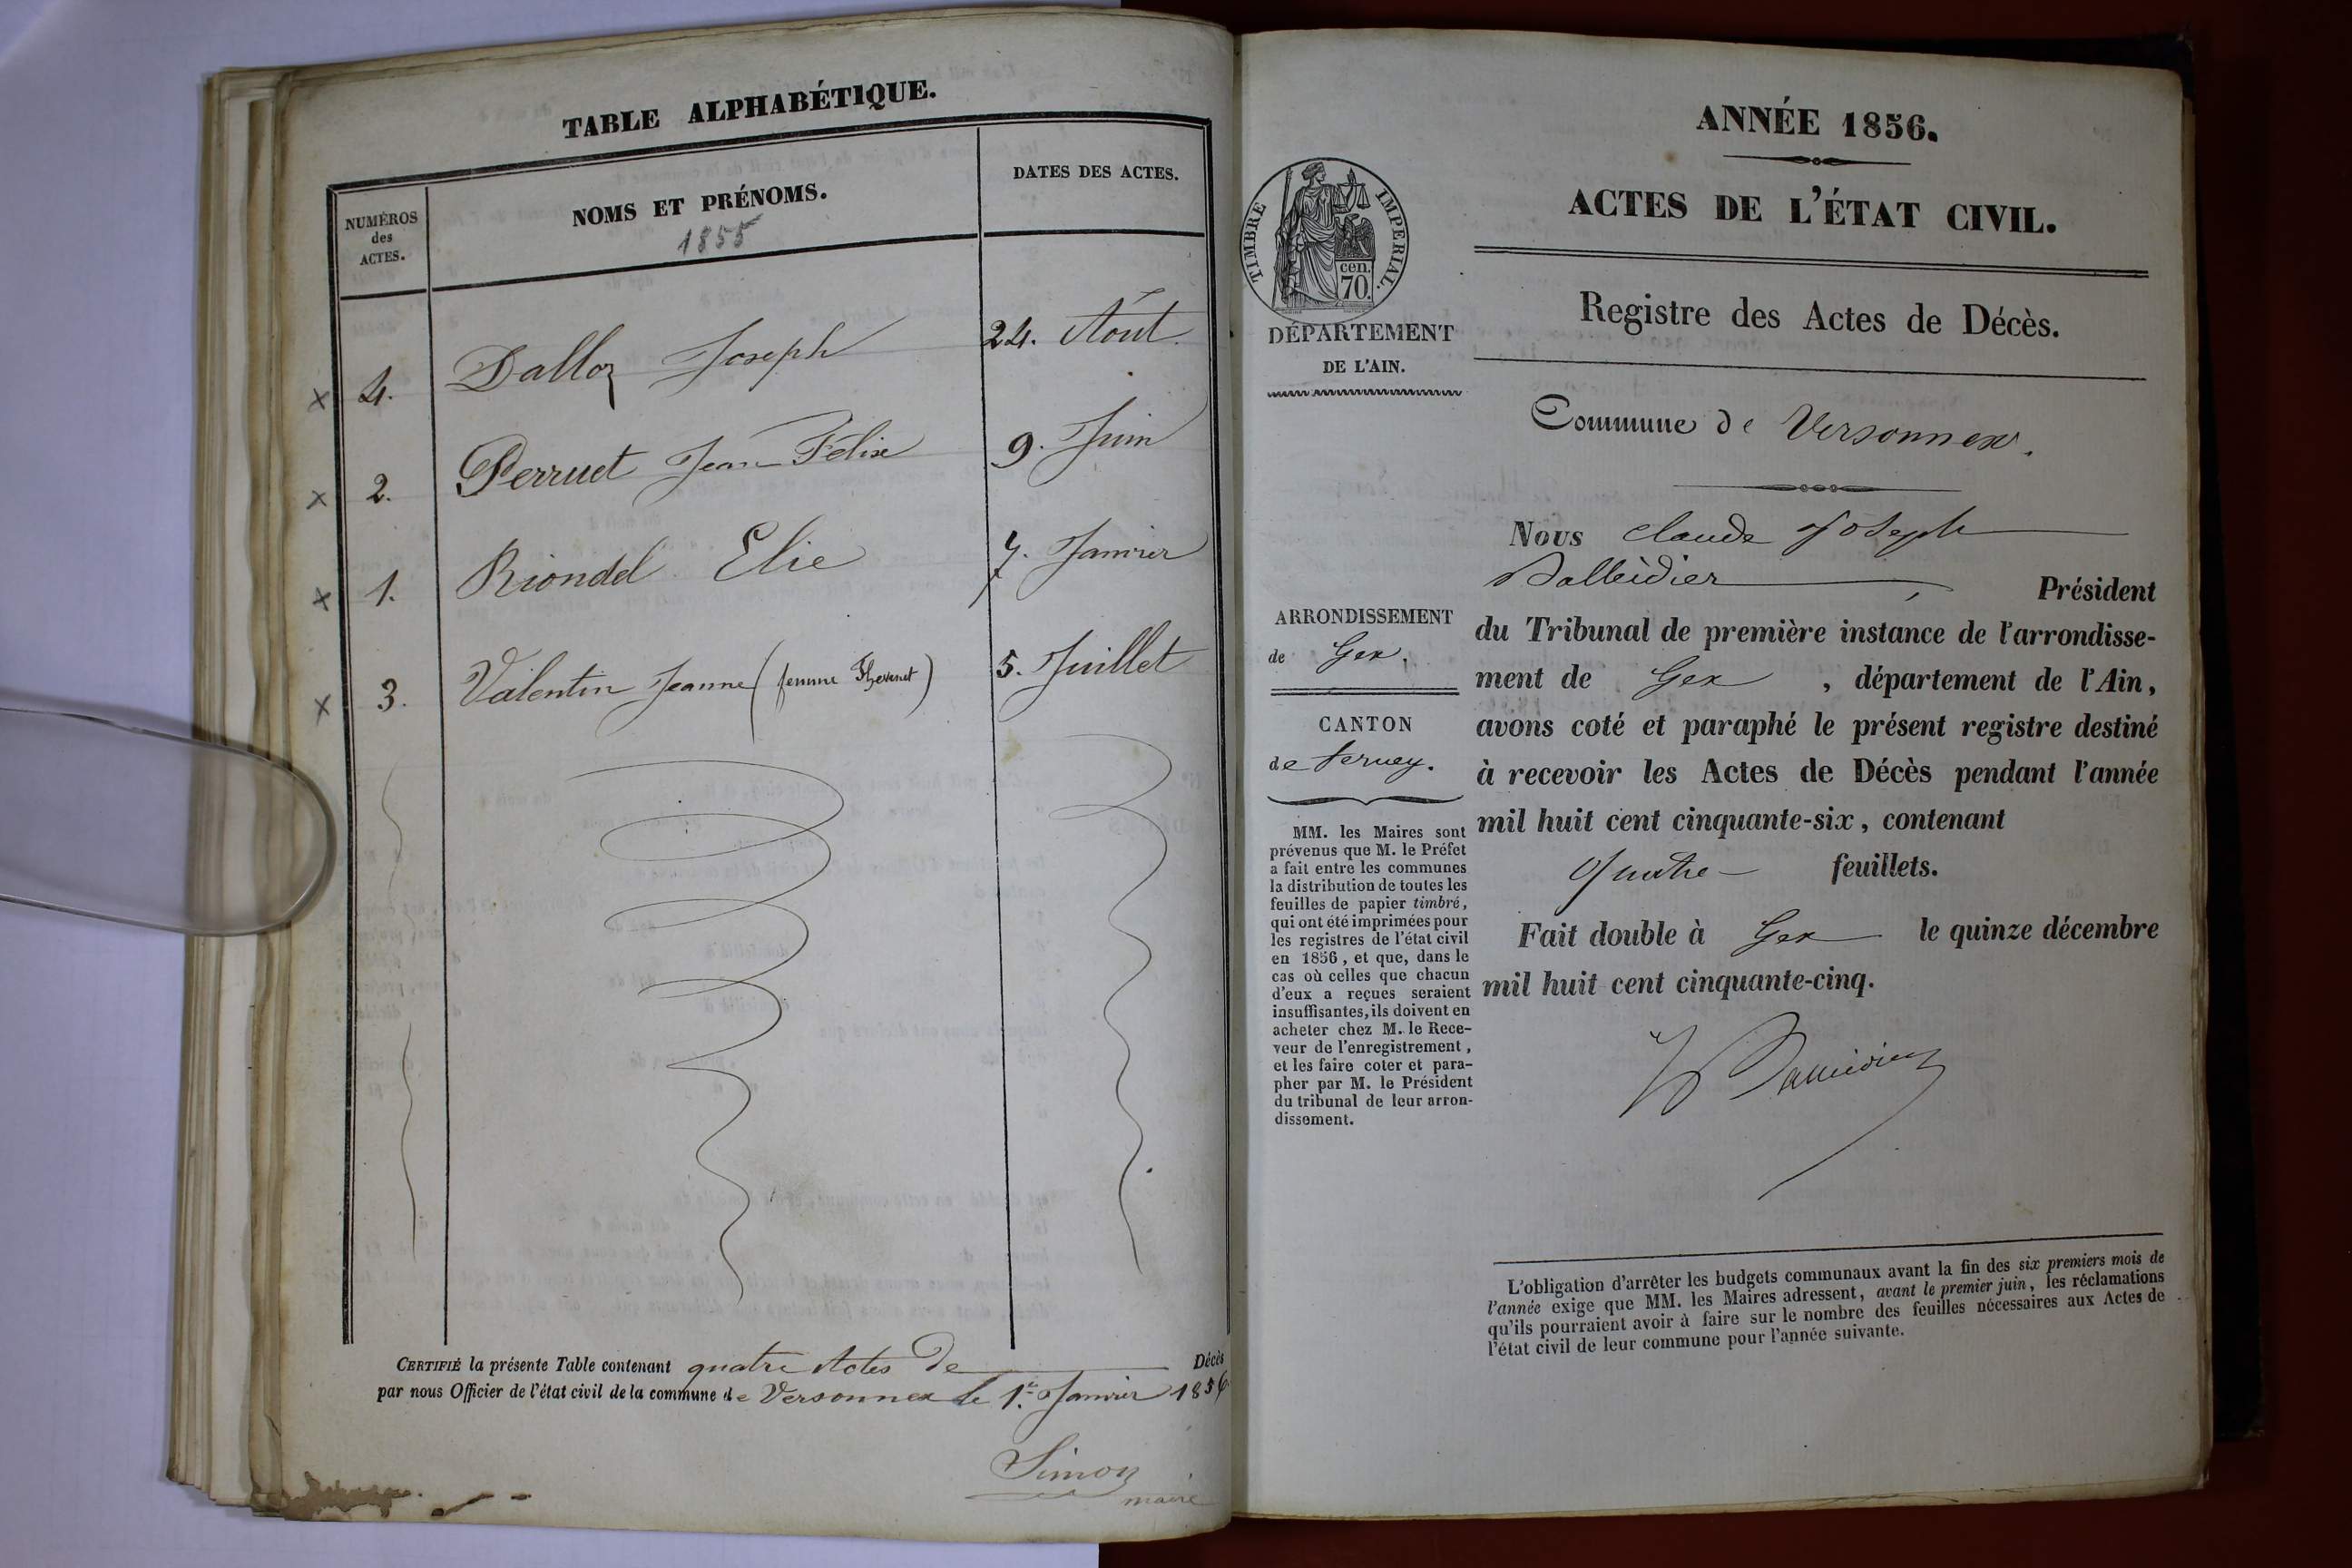 TABLE ALPHABÉTIQUE.
NUMÉROS
des
ACTES.
NOMS ET PRÉNOMS.
1855
DATES DES ACTES.
x 4. Dalloz Joseph 24. Août.
x 2. Perruet Jean Félix 9. Juin
x 1. Riondel Elie 7. Janvier
x 3. Valentin Jeanne (femme Thevenet) 5. Juillet
CERTIFIÉ la présente Table contenant quatre Actes de Décès
par nous Officier de l'état civil de la commune de Versonnex le 1er Janvier 1856
Simon
maire
ANNÉE 1856.
ACTES DE L'ÉTAT CIVIL.
TIMBRE IMPERIAL.
cen.
70.
DÉPARTEMENT
DE L'AIN.
Registre des Actes de Décès.
Commune de Versonnex.
ARRONDISSEMENT
de Gex.
CANTON
de ferney.
MM. les Maires sont
prévenus que M. le Préfet
a fait entre les communes
la distribution de toutes les
feuilles de papier timbré,
qui ont été imprimées pour
les registres de l'état civil
en 1856, et que, dans le
cas où celles que chacun
d'eux a reçues seraient
insuffisantes, ils doivent en
acheter chez M. le Rece-
veur de l'enregistrement,
et les faire coter et para-
pher par M. le Président
du tribunal de leur arron-
dissement.
Nous claude joseph
Président
du Tribunal de première instance de l'arrondisse-
ment de Gex, département de l'Ain,
avons coté et paraphé le présent registre destiné
à recevoir les Actes de Décès pendant l'année
mil huit cent cinquante-six, contenant
Quatre feuillets.
Fait double à Gex le quinze décembre
mil huit cent cinquante-cinq.
L'obligation d'arrêter les budgets communaux avant la fin des six premiers mois de
l'année exige que MM. les Maires adressent, avant le premier juin, les réclamations
qu'ils pourraient avoir à faire sur le nombre des feuilles nécessaires aux Actes de
l'état civil de leur commune pour l'année suivante.